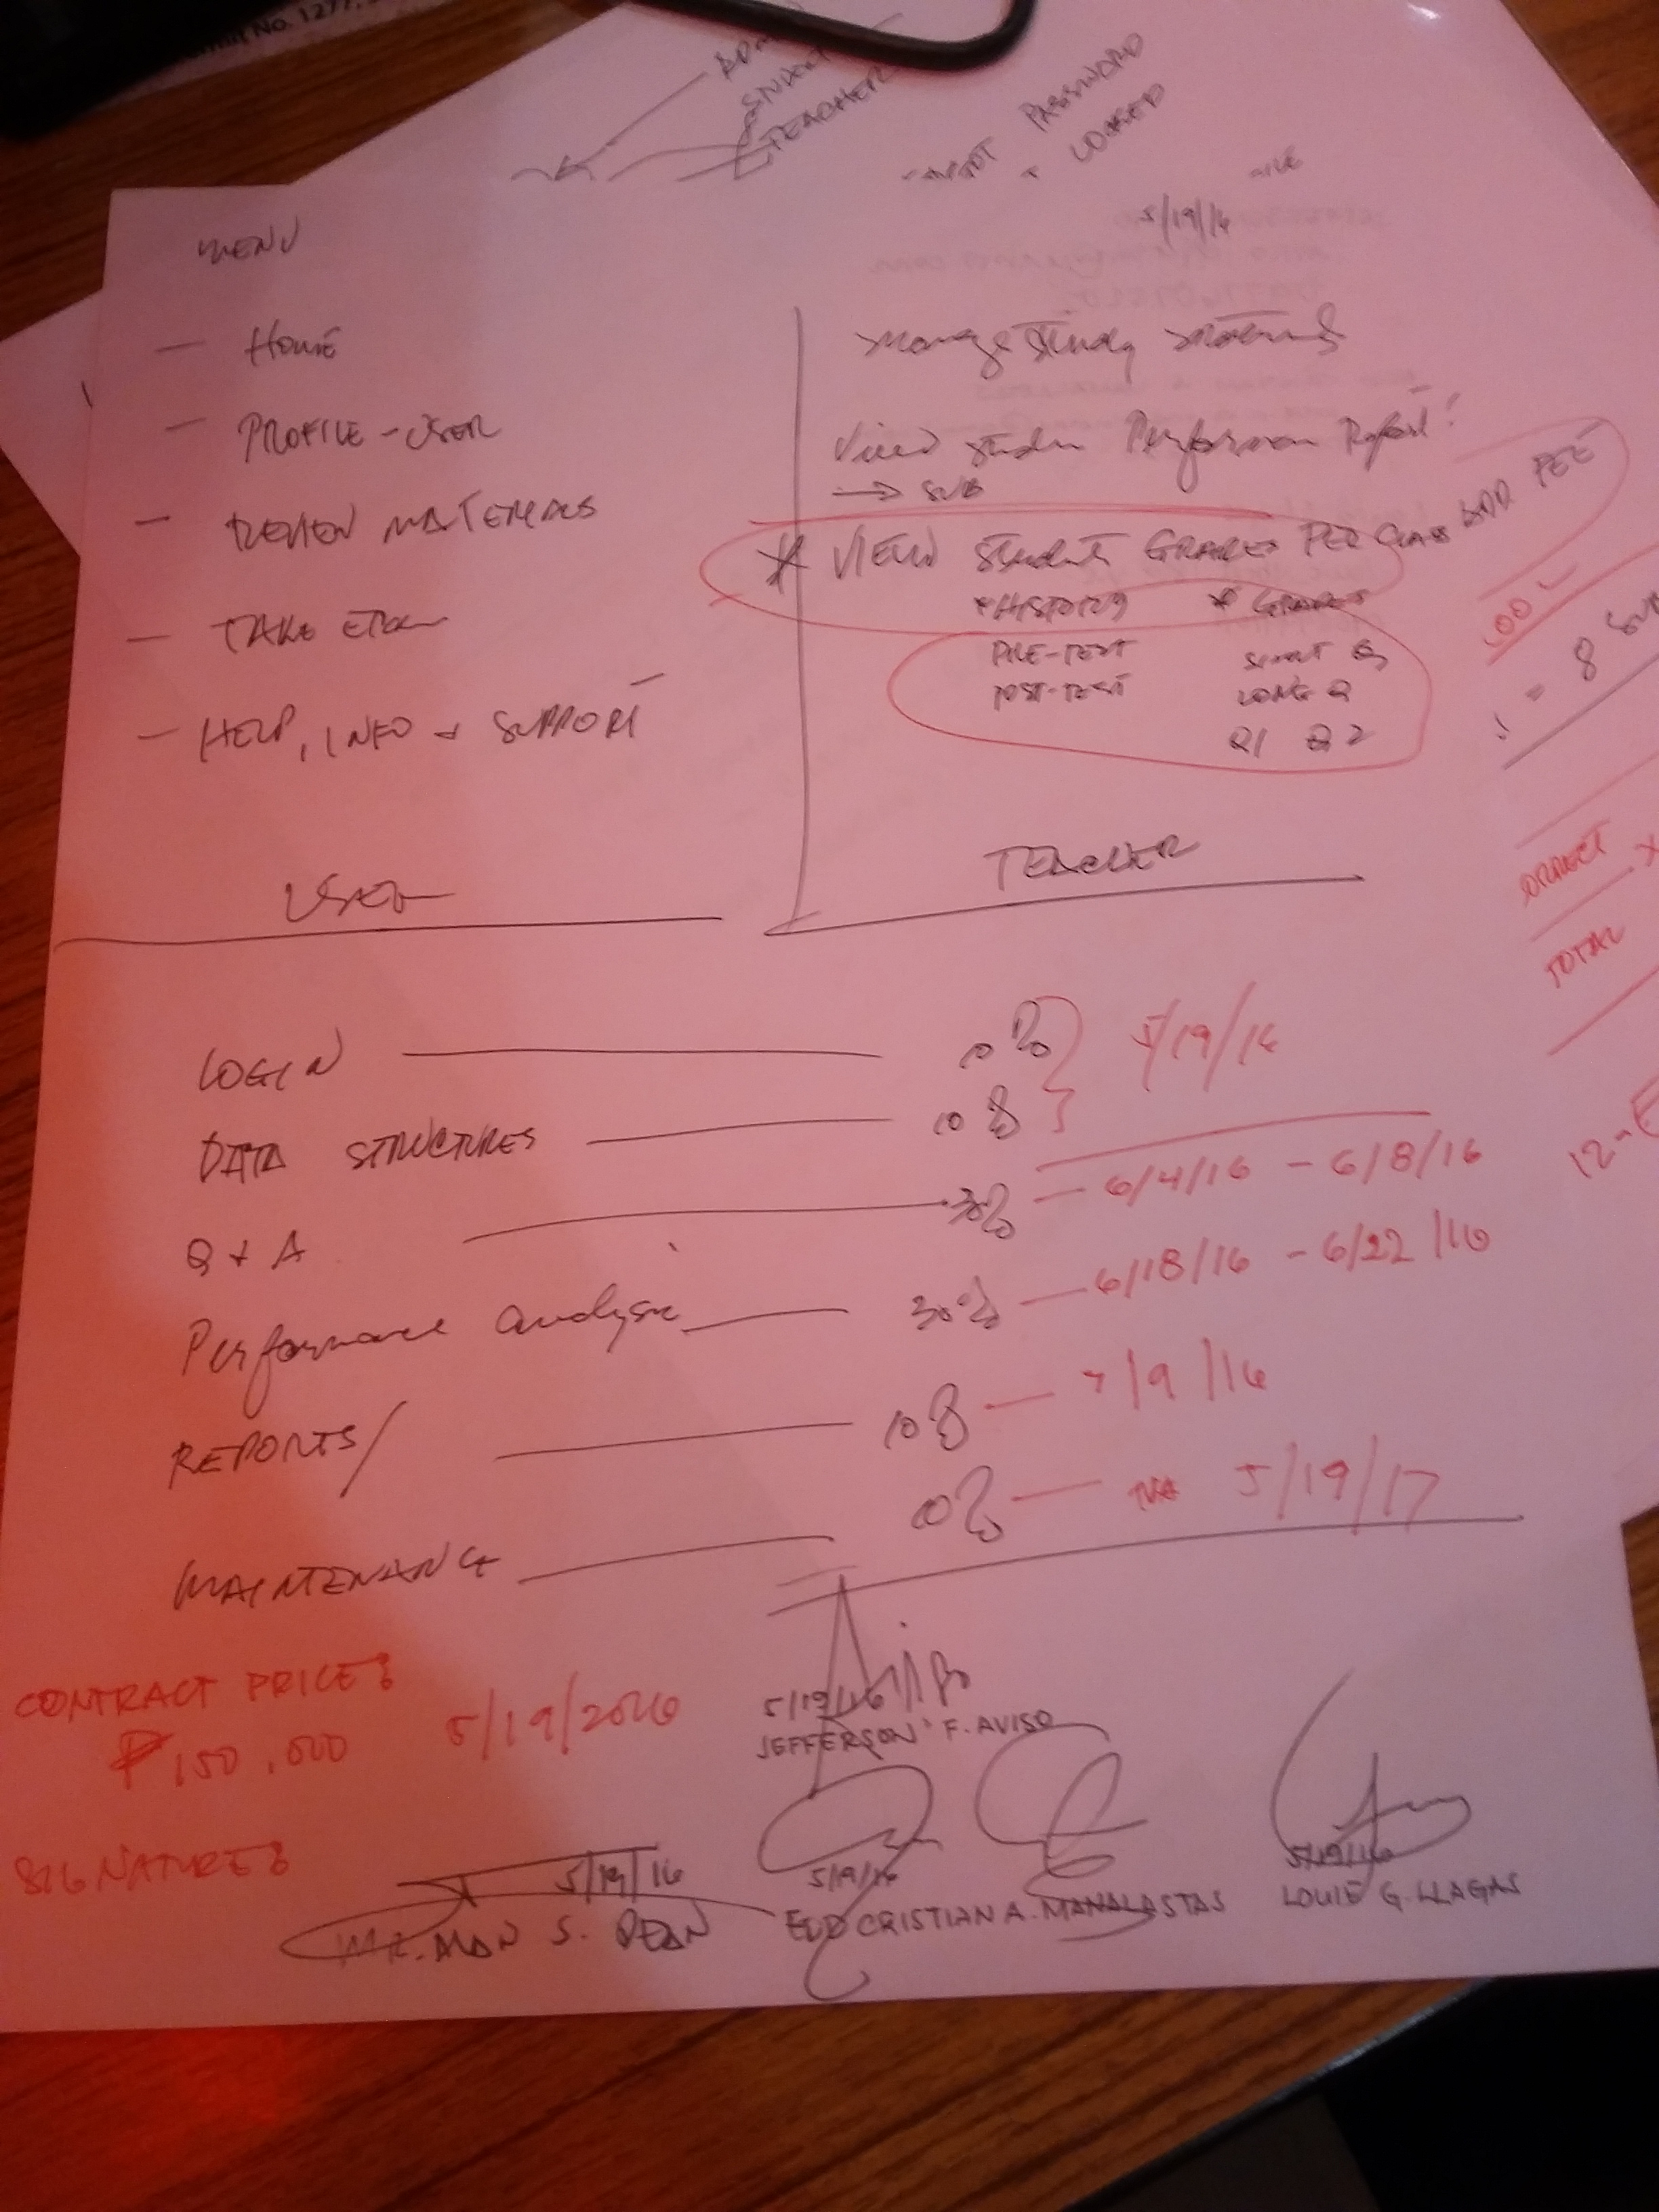 mit No. 1277,
TEACHER
PASSWORD
LOGED
5/19/16
MENU
- HOME
- PROFILE - USER
- REVIEW MATERIALS
- TAKE
- HELP, INFO & SUPPORT
USER
Manage Study Materials
View Student Performance Report
→ SUB
* VIEW Students GRADES PER CLASS ADD FEE
* HISTORY * GRADES
PRE-TEST SHORT Q
POST-TEST LONG Q
Q1 Q2
TEACHER
8
TOTAL
12-
LOGIN 10% 5/19/16
DATA STRUCTURES 10%
Q & A 30% - 6/4/16 - 6/8/16
Performance Analysis 30% - 6/18/16 - 6/22/16
REPORTS/ 10% - 7/9/16
MAINTENANCE 10% - 5/19/17
CONTRACT PRICE:
₱150,000 5/19/2016
5/19/16
JEFFERSON F. AVISO
SIGNATURE:
5/19/16 5/19/16 5/19/16
MR. S. CRISTIAN A. MANALASTAS LOUIE G. LLAGAS